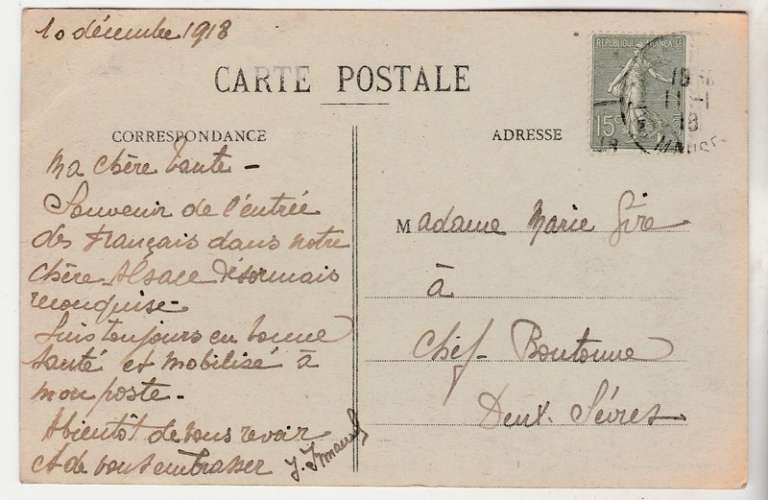 10 décembre 1918
CARTE POSTALE
CORRESPONDANCE
Ma chère tante -
Souvenir de l'entrée
des Français dans notre
chère Alsace désormais
reconquise -
Suis toujours en bonne
santé et mobilisé à
mon poste -
A bientôt de vous revoir
et de vous embrasser
REPUBLIQUE FRANÇAISE
15c
ADRESSE
Madame Marie
à
Chef-Boutonne
Deux-Sèvres